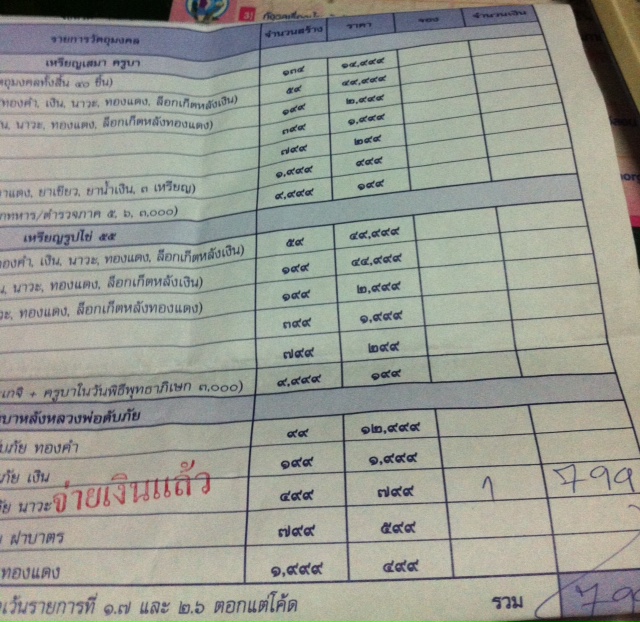 3]
รายการวัตถุมงคล จำนวนสร้าง ราคา จอง จำนวนเงิน
เหรียญเสมา ครูบา
ถุมงคลทั้งสิ้น ๔๖ ชิ้น) ๑๓๕ ๑๔,๙๙๙
ทองคำ, เงิน, นาวะ, ทองแดง, ล็อกเก็ตหลังเงิน) ๕๙ ๔๙,๙๙๙
น, นาวะ, ทองแดง, ล็อกเก็ตหลังทองแดง) ๑๙๙ ๒,๙๙๙
๓๙๙ ๑,๙๙๙
๗๙๙ ๒๙๙
าแดง, ยาเขียว, ยาน้ำเงิน, ๓ เหรียญ) ๑,๙๙๙ ๔๙๙
ทหาร/ตำรวจภาค ๕, ๖, ๓,๐๐๐) ๙,๙๙๙ ๑๙๙
เหรียญรูปไข่ ๕๕
องคำ, เงิน, นาวะ, ทองแดง, ล็อกเก็ตหลังเงิน) ๕๙ ๔๙,๙๙๙
น, นาวะ, ทองแดง, ล็อกเก็ตหลังเงิน) ๑๙๙ ๔๔,๙๙๙
ะ, ทองแดง, ล็อกเก็ตหลังทองแดง) ๑๙๙ ๒,๙๙๙
๓๙๙ ๑,๙๙๙
๗๙๙ ๒๙๙
เกจิ + ครูบาในวันพิธีพุทธาภิเษก ๓,๐๐๐) ๙,๙๙๙ ๑๙๙
บาหลังหลวงพ่อดับภัย
ับภัย ทองคำ ๙๙ ๑๒,๙๙๙
ภัย เงิน ๑๙๙ ๑,๙๙๙
ัย นาวะ จ่ายเงินแล้ว ๔๙๙ ๗๙๙ 1 799
ฝาบาตร ๗๙๙ ๕๙๙
ทองแดง ๑,๙๙๙ ๔๙๙
เว้นรายการที่ ๑.๗ และ ๒.๖ ตอกแต่โค้ด รวม 799